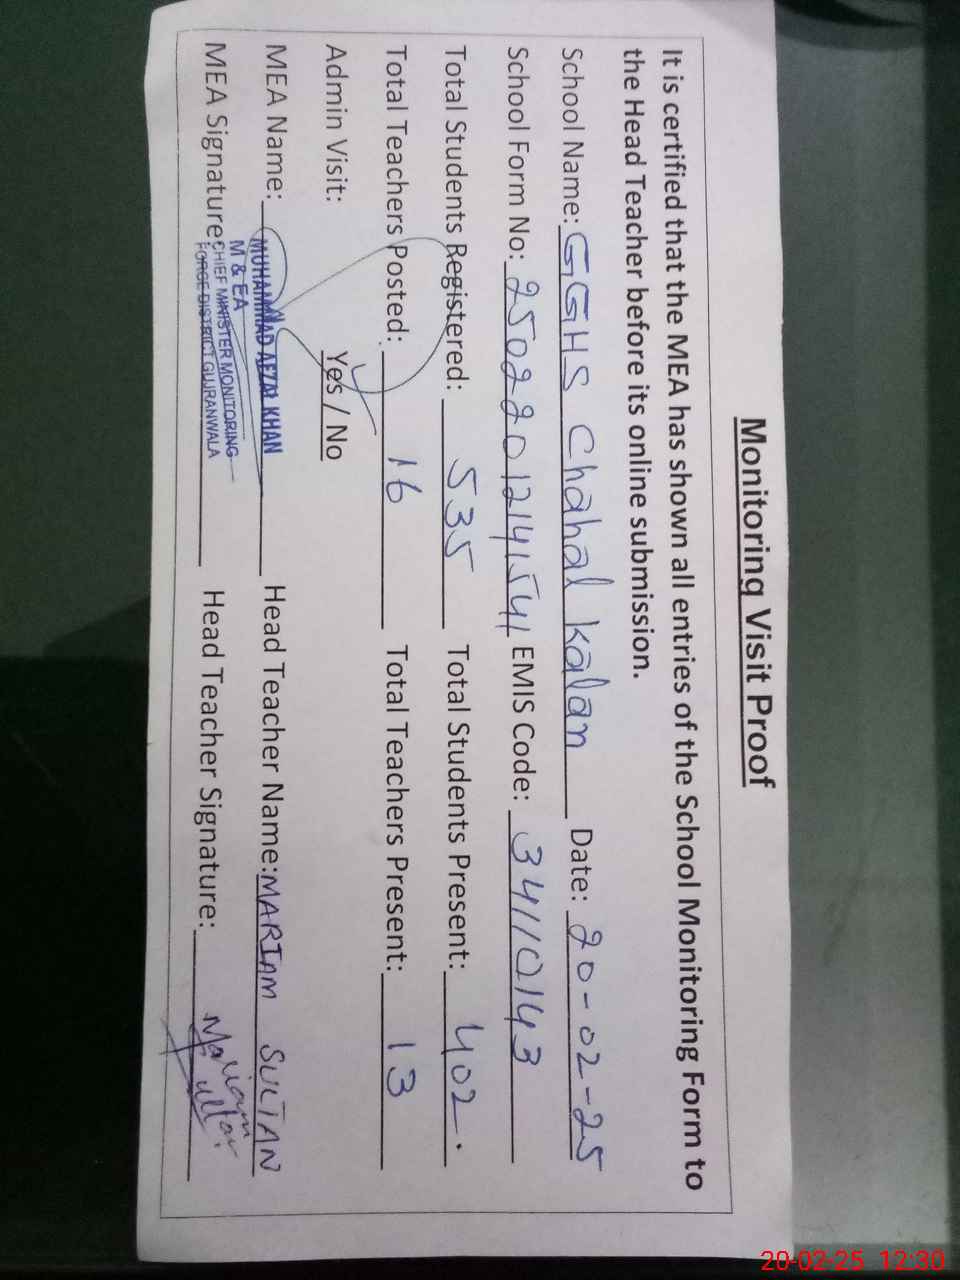 Monitoring Visit Proof
It is certified that the MEA has shown all entries of the School Monitoring Form to
the Head Teacher before its online submission.
School Name: GGHS Chahal Kalan Date: 20-02-25
School Form No: 25022012141541 EMIS Code: 34110143
Total Students Registered: 535 Total Students Present: 402.
Total Teachers Posted: 16 Total Teachers Present: 13
Admin Visit: Yes / No
MEA Name: MUHAMMAD AFZAL KHAN Head Teacher Name: MARIAM SULTAN
M & EA
MEA Signature: CHIEF MINISTER MONITORING Head Teacher Signature: Mariam Sultan
FORCE DISTRICT GUJRANWALA
20-02-25 12:30